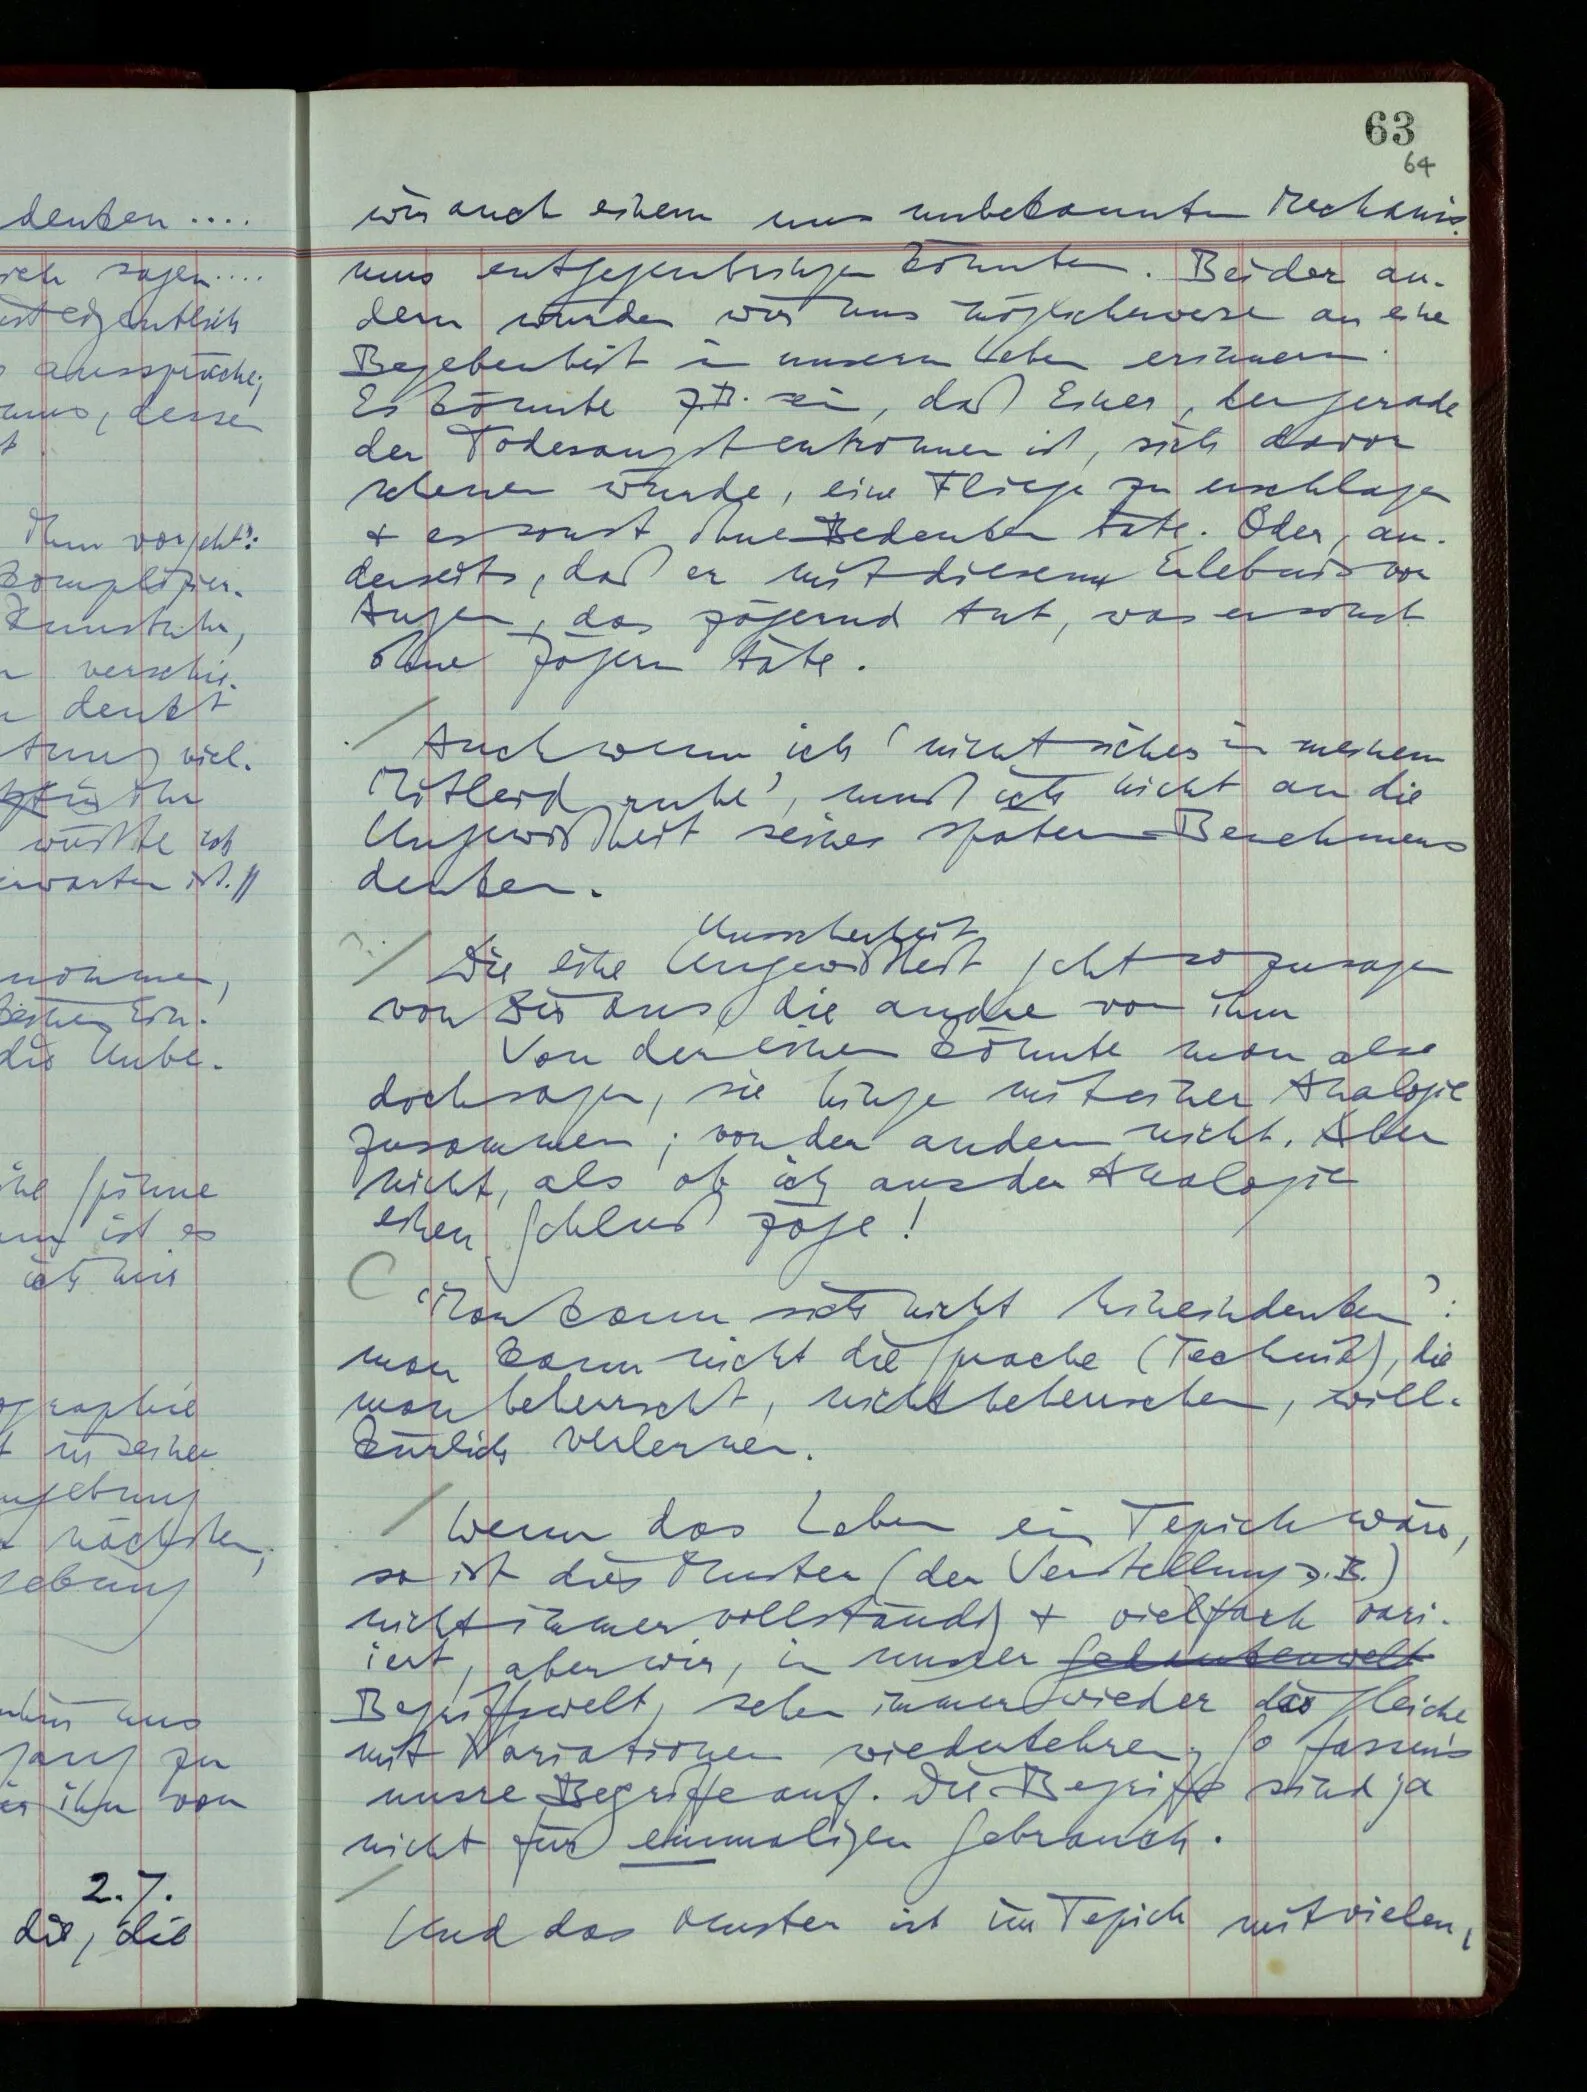 denken ....
sagen ....
eigentlich
ausspräche;
, dessen
t
Ihm vorgeht":
komplizier-
Kunstuhr,
verschie-
denkt
viel-
ihn
wüßte ich
erwarten ist."
Ein-
die Unbe-
Spinne
ist es
ich mir
ographie
t in seiner
mgebung
nächsten,
gebung
uns
zu
ihn von
2.7.
die, die
63
64
wir auch einem uns unbekannten Mechanis-
mus entgegenbringen könnten. Bei der an-
dern würden wir uns möglicherweise an eine
Begebenheit in unserm Leben erinnern.
Es könnte z.B. sein, daß Einer, der gerade
der Todesangst entronnen ist, sich davor
scheuen würde, eine Fliege zu erschlagen
+ es sonst ohne Bedenken täte. Oder, an-
derseits, daß er mit diesem Erlebnis vor
Augen, das zögernd tut, was er sonst
ohne Zögern täte.
/ Auch wenn ich 'nicht sicher in meinem
Mitleid ruhe', muß ich nicht an die
Ungewißheit seines spätern Benehmens
denken.
Unsicherheit
? / Die eine Ungewißheit geht sozusagen
von Dir aus, die andre von ihm
Von der einen könnte man also
doch sagen, sie hinge mit einer Analogie
zusammen; von der andern nicht. Aber
nicht, als ob ich aus der Analogie
einen Schluß zöge!
C 'Man kann sich nicht hineindenken':
man kann nicht die Sprache (Technik), die
man beherrscht, nicht beherrschen, will-
kürlich verlernen.
/ Wenn das Leben ein Tepich wäre,
so ist dies Muster (der Verstellung z.B.)
nicht immer vollständig + vielfach vari-
iert, aber wir, in unsrer Gedankenwelt
Begriffswelt, sehen immer wieder das Gleiche
mit Variationen wiederkehren. So fassen's
unsre Begriffe auf. Die Begriffe sind ja
nicht für einmaligen Gebrauch.
/ Und das Muster ist im Tepich mit vielen,